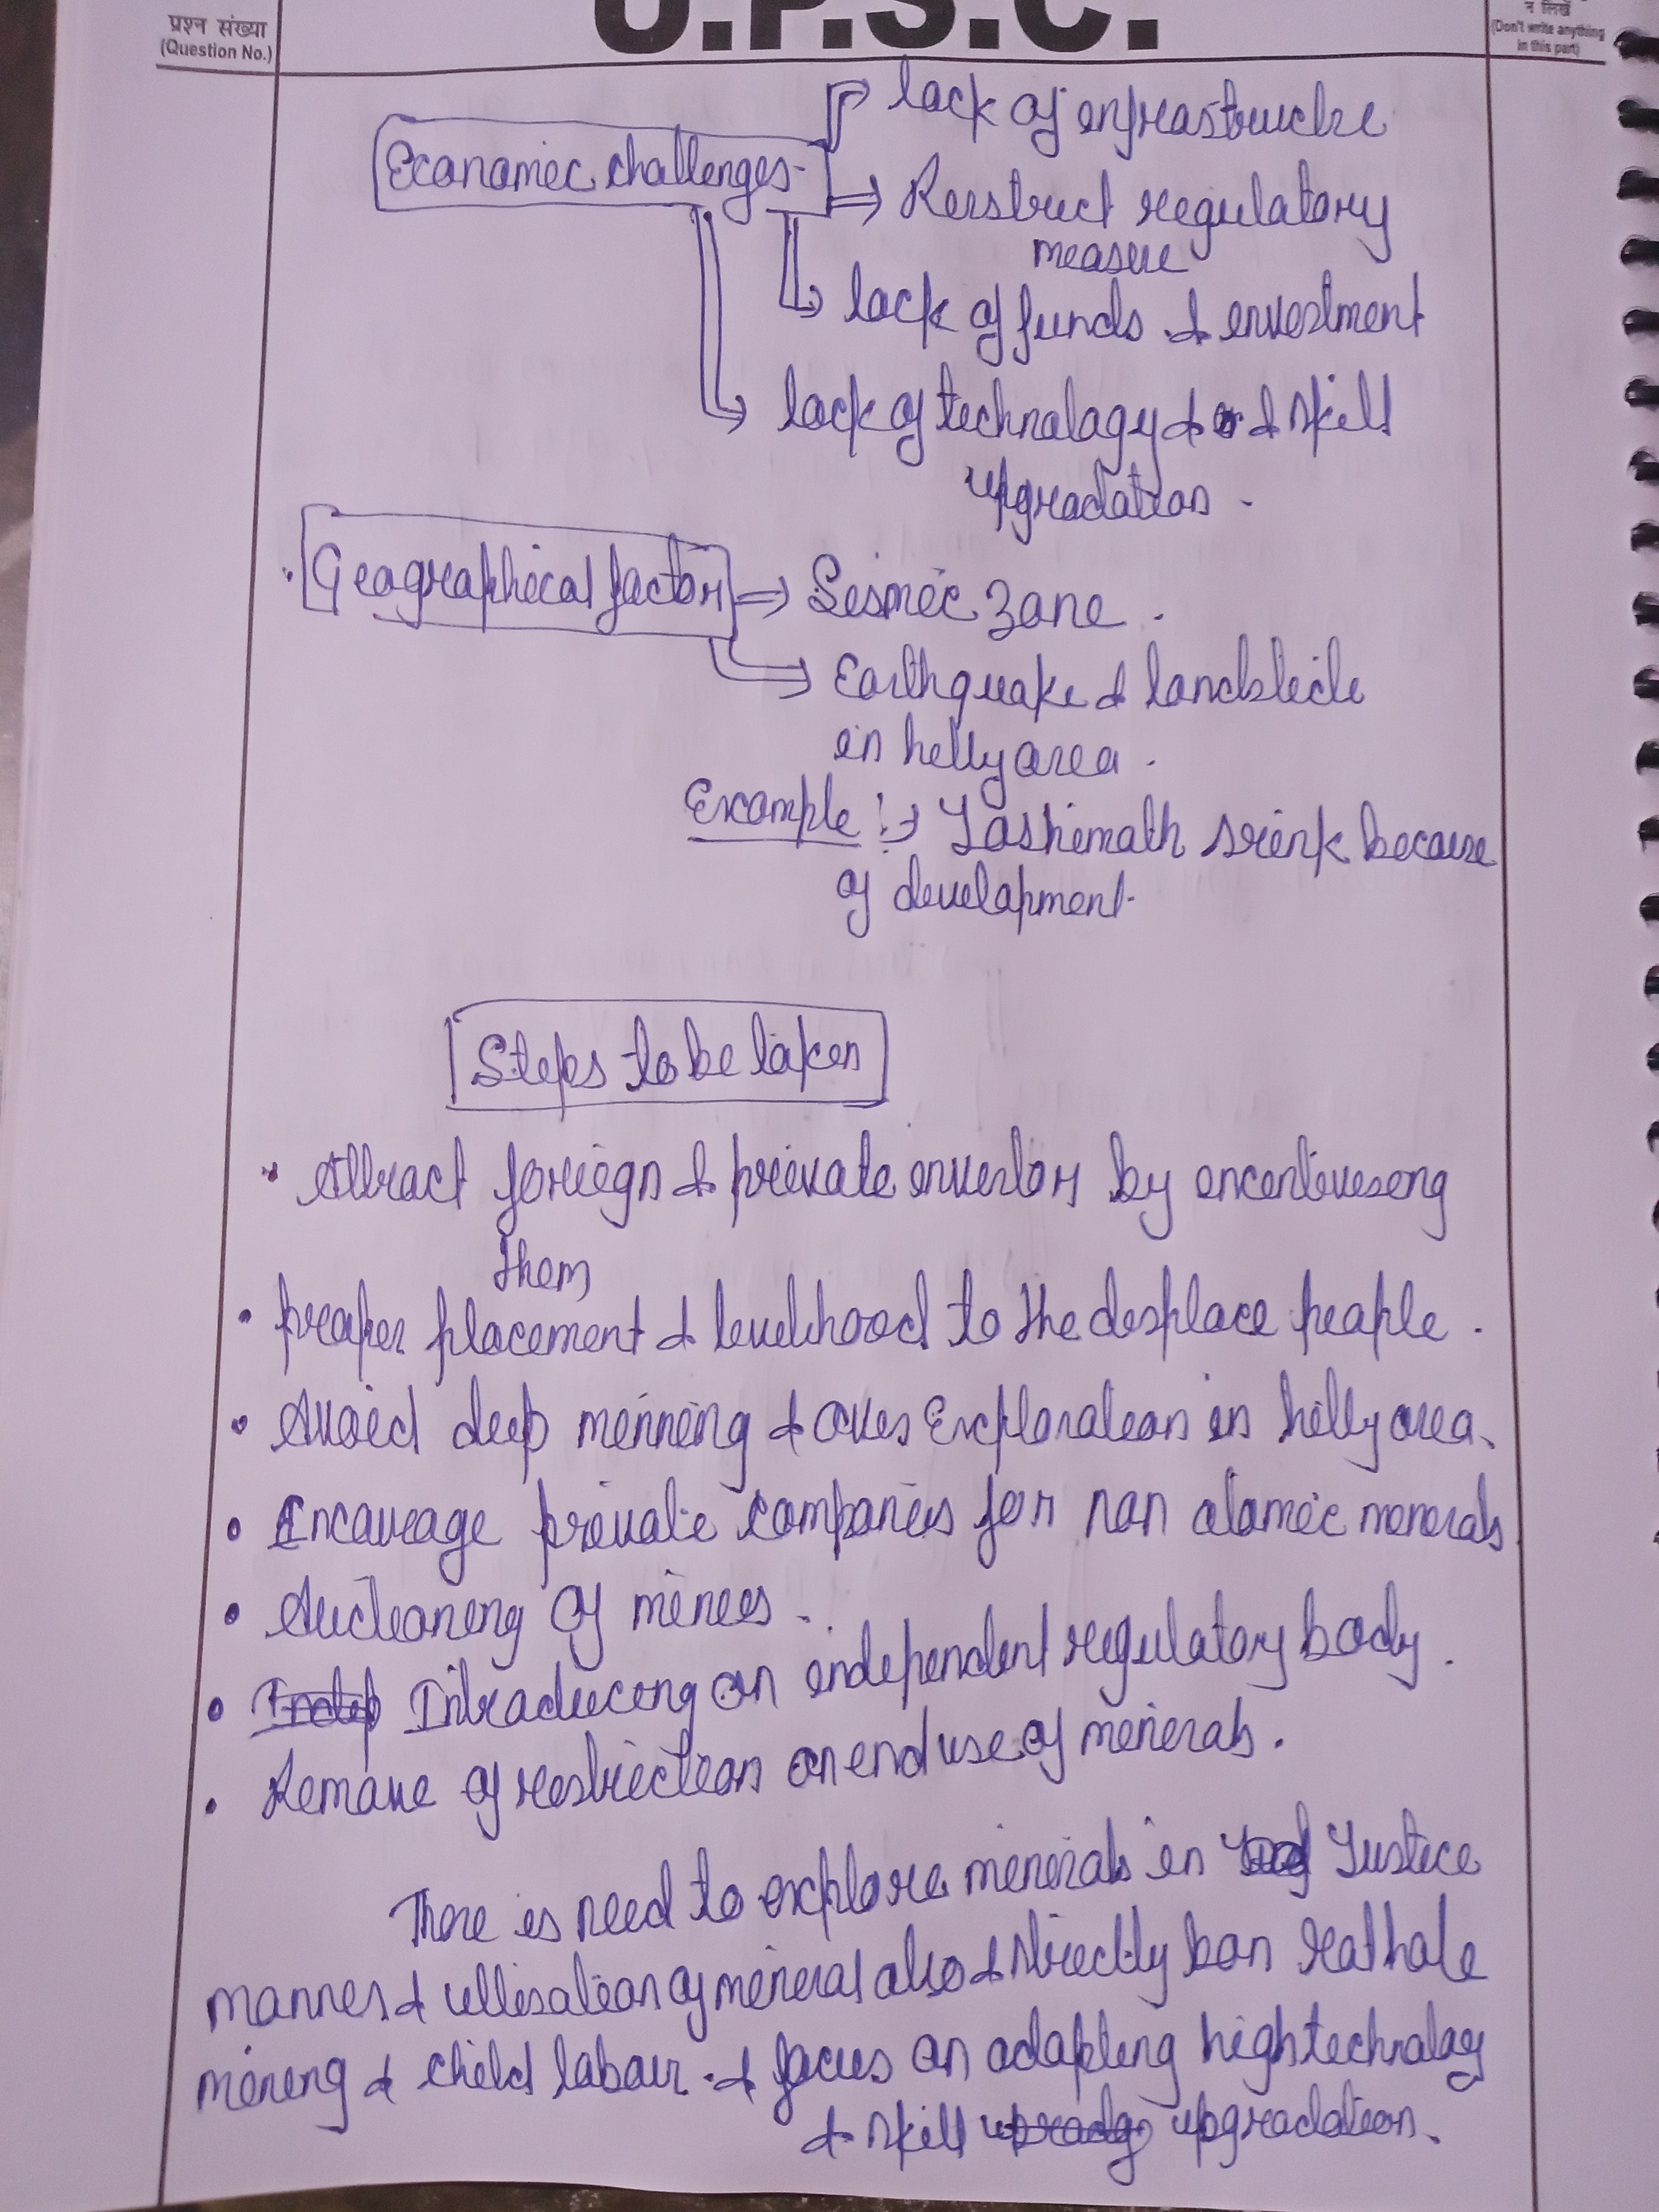 प्रश्न संख्या
(Question No.)
U.P.S.C.
न लिखें
(Don't write anything
in this part)
Economic challenges
lack of infrastructure
Restrict regulatory
measure
lack of funds & investment
lack of technology & & skill
upgradation.
Geographical factors
Sesmic zone.
Earthquake & landslide
in hilly area.
Example :→ Joshimath srink because
of development.
Steps to be taken
Attract foriegn & private investors by incentivising
them
proper placement & livelihood to the displace people.
Avoid deep minning & over Exploration in hilly area.
Encourage private companies for non atomic minerals
Auctioning of mines.
Indep Introducing an independent regulatory body.
Remove of restriction on end use of minerals.
There is need to explore minerals in Justice
manner & utlisation of mineral also & strictly ban rat hole
mining & child labour. & focus on adapting high technology
& skill upgradation.